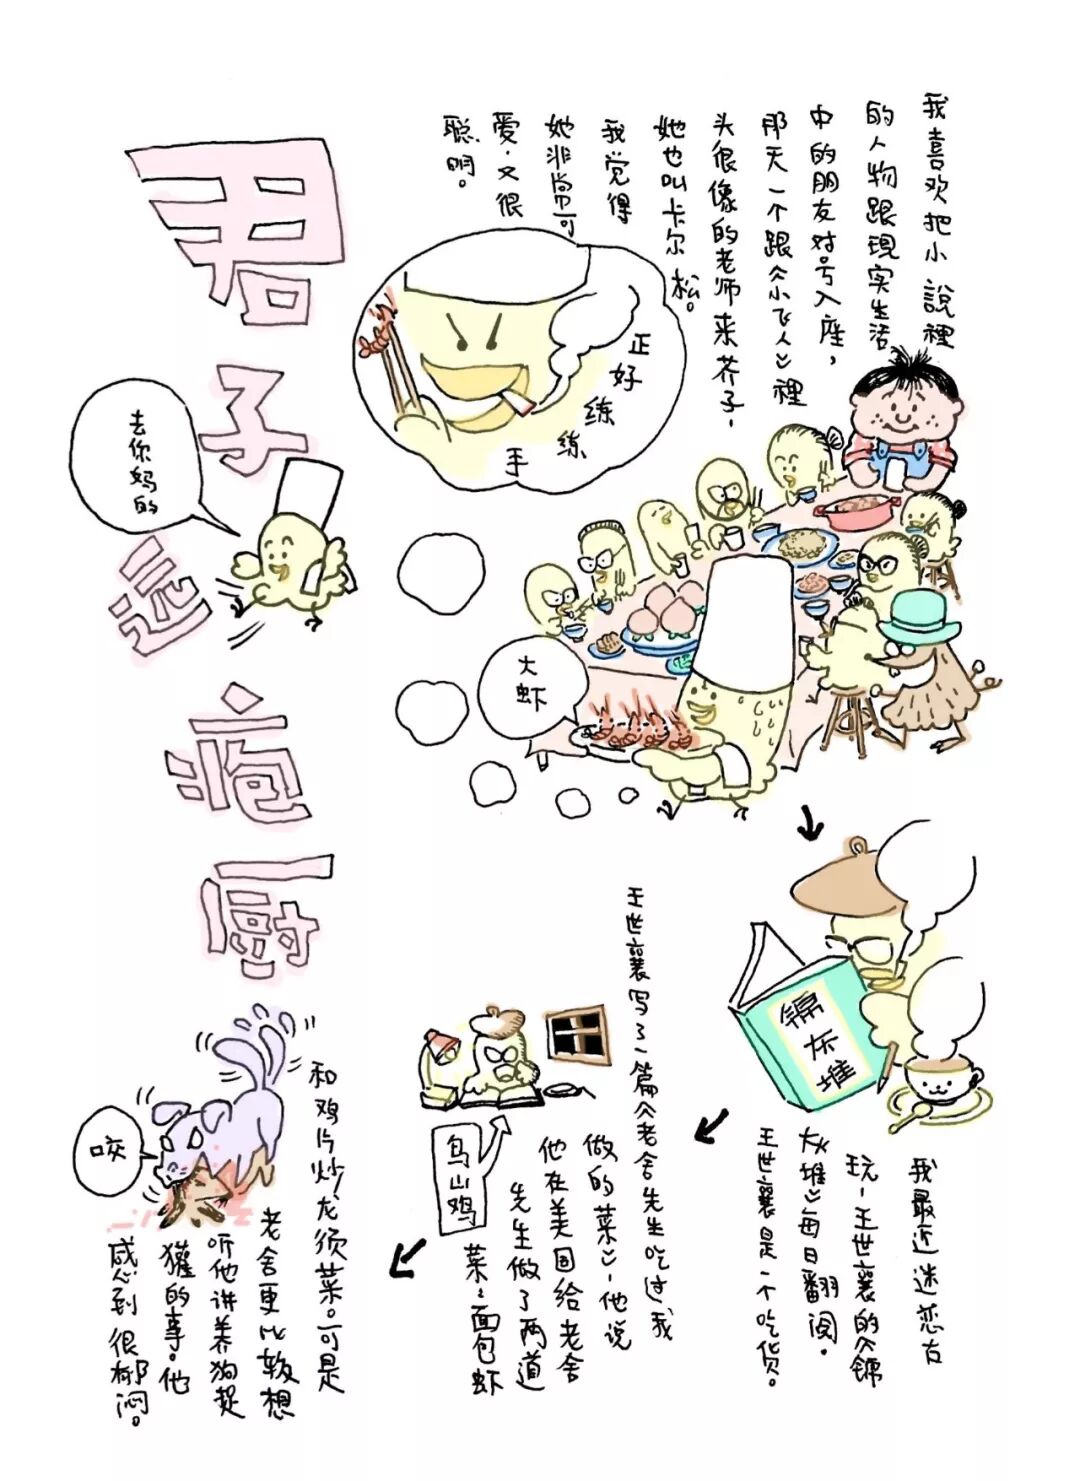 君子远疱厨
我喜欢把小說裡
的人物跟現实生活
中的朋友对号入座，
那天一个跟《小飞人》裡
头很像的老师来芥子，
她也叫卡尔松。
我觉得
她非常可
爱，又很
聪明。
正好练练手
去你妈的
大虾
锦灰堆
我最近迷恋古
玩，王世襄的《锦
灰堆》每日翻阅，
王世襄是一个吃货。
王世襄写了一篇《老舍先生吃过我
做的菜》，他说
他在美国给老舍
先生做了两道
菜：面包虾
鸟山鸡
和鸡片炒龙须菜。可是
老舍更比较想
听他讲养狗捉
獾的事。他
感到很郁闷。
咬